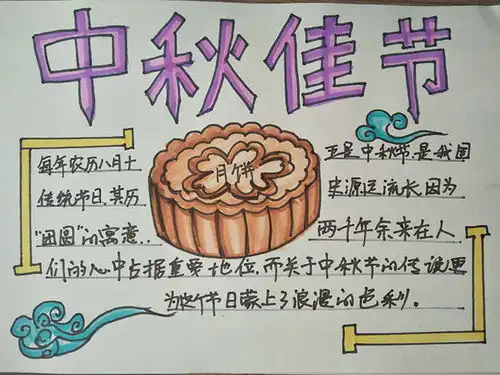 中秋佳节
月饼
每年农历八月十五是中秋节.是我国
传统节日.其历史源远流长.因为
"团圆"的寓意..两千年余来在人
们的心中占据重要地位.而关于中秋节的传说更
为这个节日蒙上了浪漫的色彩。